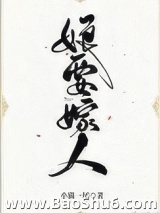 娘要嫁人
小圓一居◎著
www.BaoShu6.com